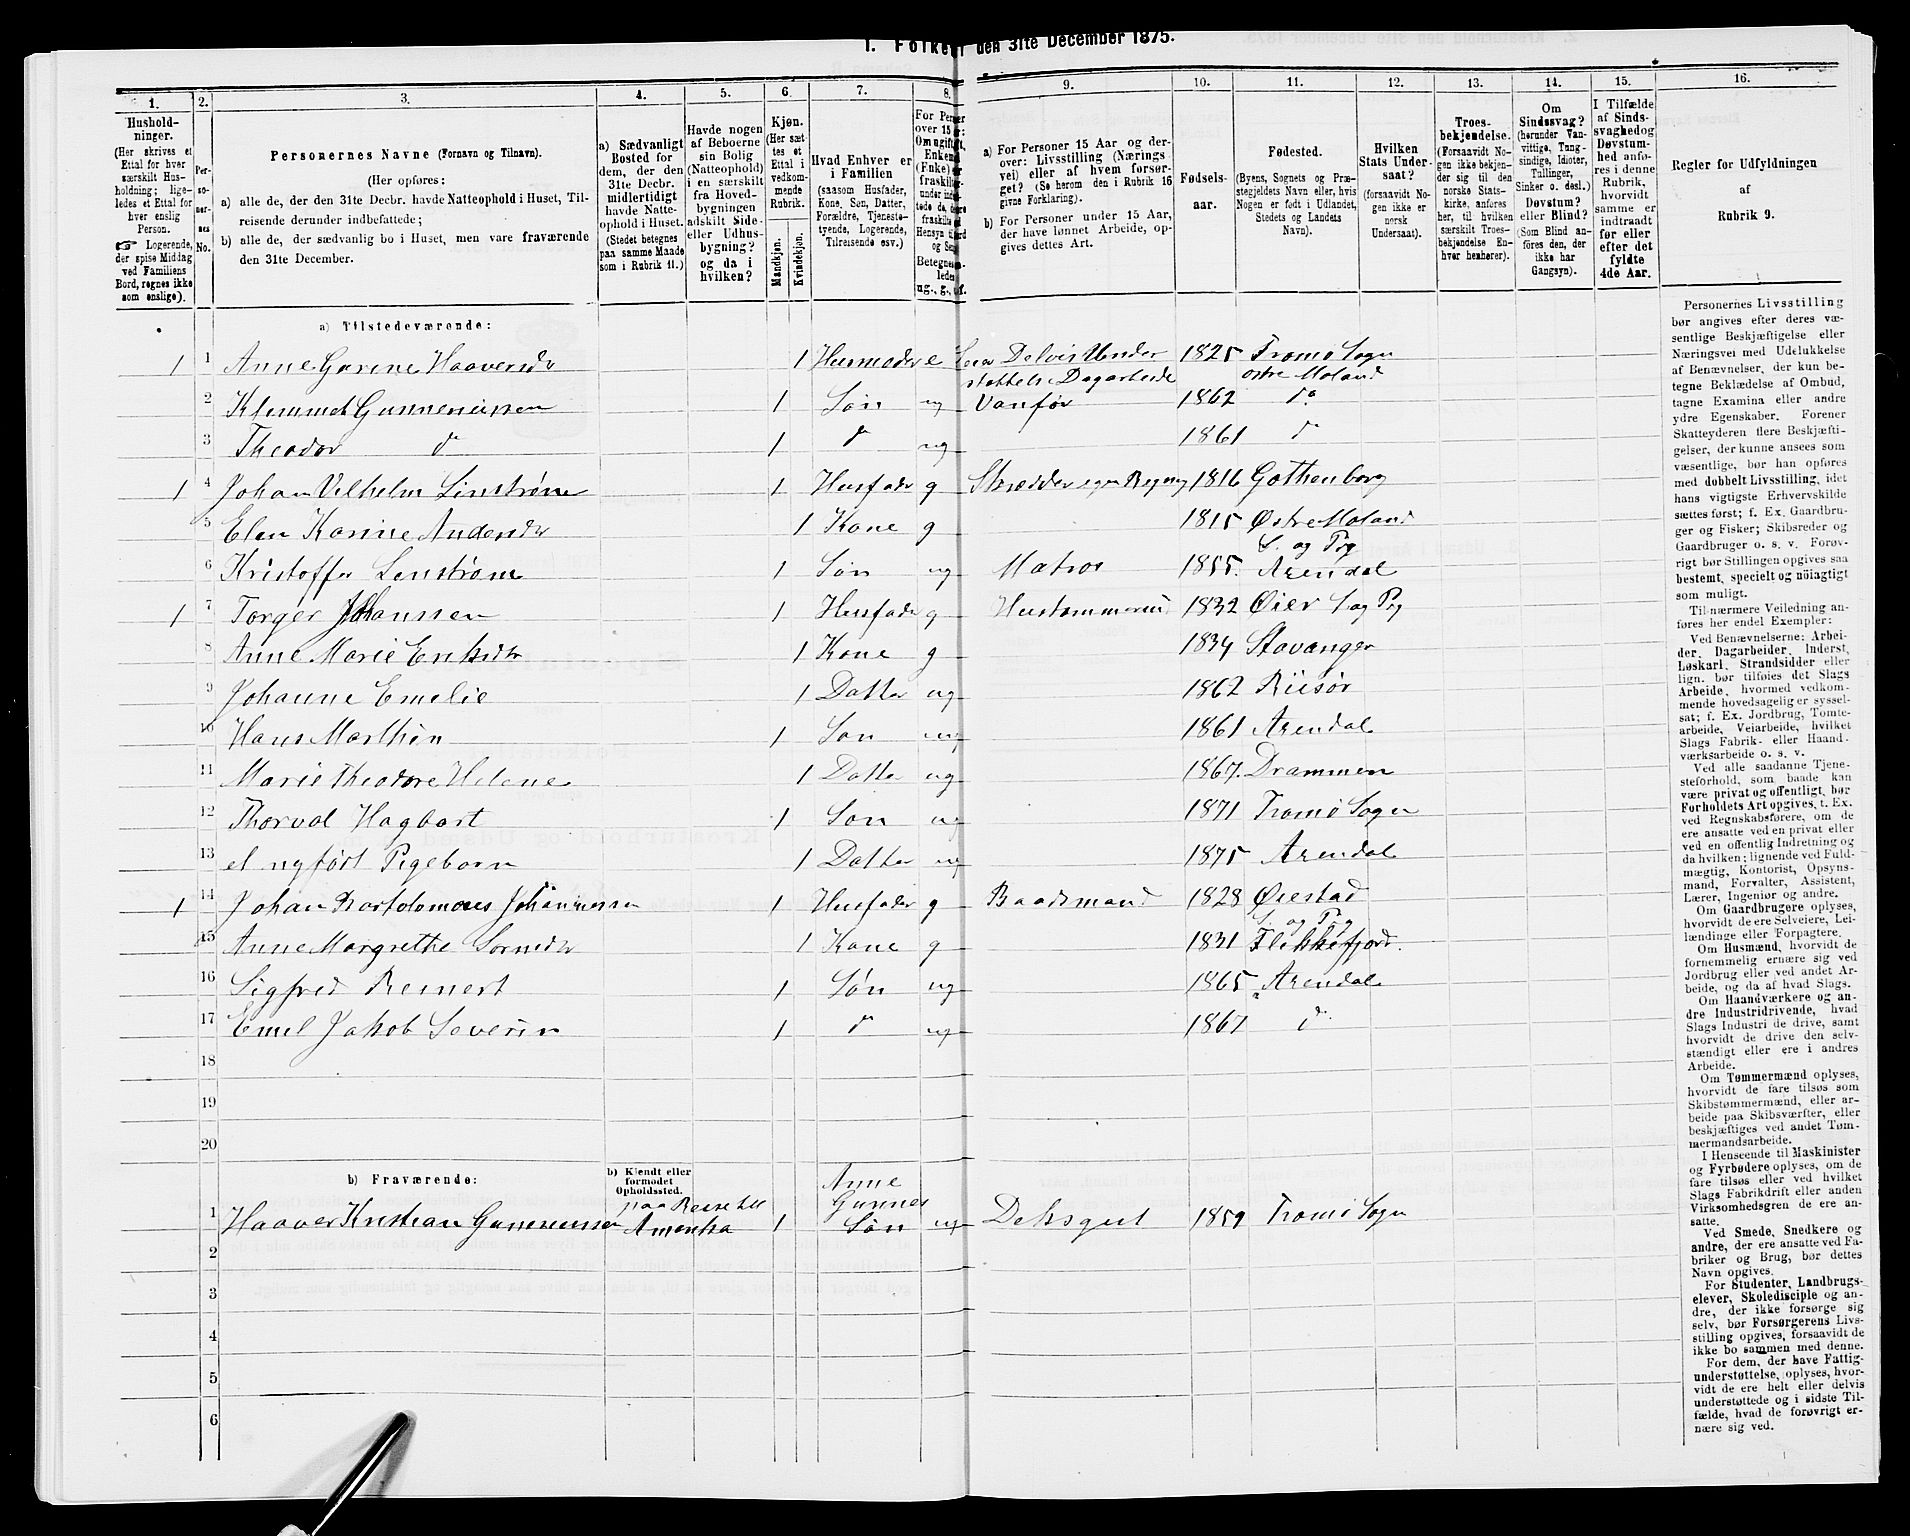 1. Folket den 31te December 1875.
1. 2. 3. 4. 5. 6. 7. 8. 9. 10. 11. 12. 13. 14. 15. 16.
Hushold-
ninger.
(Her skrives et
Ettal for hver
særskilt Hus-
holdning; lige-
ledes et Ettal for
hver enslig
Person.
☞ Logerende,
der spise Middag
ved Familiens
Bord, regnes ikke
som enslige).
Per-
so-
ner-
nes
No.
Personernes Navne (Fornavn og Tilnavn).
(Her opføres:
a) alle de, der den 31te Decbr. havde Natteophold i Huset, Til-
reisende derunder indbefattede;
b) alle de, der sædvanlig bo i Huset, men vare fraværende
den 31te December.
a) Sædvanligt
Bosted for
dem, der den
31te Decbr.
midlertidigt
havde Natte-
ophold i Huset.
(Stedet betegnes
paa samme Maade
som i Rubrik 11.)
Havde nogen
af Beboerne
sin Bolig
(Natteophold)
i en særskilt
fra Hoved-
bygningen
adskilt Side-
eller Udhus-
bygning?
og da i
hvilken?
Kjøn.
(Her sæt-
tes et
Ettal i
vedkom-
mende
Rubrik.
Mandkjøn.
Kvindekjøn.
Hvad Enhver er
i Familien
(saasom Husfader,
Kone, Søn, Datter,
Forældre, Tjeneste-
tyende, Logerende,
Tilreisende osv.)
For Perso
over 15
Om ugift,
Enkem
(Enke)
fraskilt
Betegnes
ledes
ug., g., f.
a) For Personer 15 Aar og der-
over: Livsstilling (Nærings-
vei) eller af hvem forsør-
get? (Se herom den i Rubrik 16
givne Forklaring).
b) For Personer under 15 Aar,
der have lønnet Arbeide, op-
gives dettes Art.
Fødsels-
aar.
Fødested.
(Byens, Sognets og Præ-
stegjeldets Navn eller, hvis
Nogen er født i Udlandet,
Stedets og Landets
Navn).
Hvilken
Stats Under-
saat?
(forsaavidt No-
gen ikke er
norsk
Undersaat).
Troes-
bekjendelse.
(Forsaavidt No-
gen ikke bekjen-
der sig til den
norske Stats-
kirke, anføres
her, til hvilken
særskilt Troes-
bekjendelse En-
hver henhører).
Om
Sindssvag?
(herunder Van-
vittige, Tung-
sindige, Idioter,
Tullinger,
Sinker o. desl.)
Døvstum?
eller Blind?
(Som Blind an-
føres den, der
ikke har
Gangsyn).
I Tilfælde
af Sinds-
svaghed og
Døvstum-
hed anfø-
res i denne
Rubrik,
hvorvidt
samme er
indtraadt
før eller
efter det
fyldte
4de Aar.
Regler for Udfyldningen
af
Rubrik 9.
a) Tilstedeværende:
1 1 Anne Gurine Haaversdr 1 Husmoder e Delvis Under 1825 Tromø Sogn
støttelse Dagarbeide østre Moland
2 Klemmet Gunneriussen 1 Søn ug Vanfør 1862 do
3 Theodor do 1 do ug 1861 do
1 4 Johan Vilhelm Linstrøm 1 Husfader g Skrædder egen Regning 1816 Gothenborg
5 Elen Karine Andersdr 1 Kone g 1815 Østre Moland
S. og Pg
6 Kristoffer Linstrøm 1 Søn ug Matros 1855. Arendal
1 7 Torger Johanssen 1 Husfader g Hustømmermand 1832 Øier S og Pg
8 Anne Marie Eriksdr 1 Kone g 1834 Stavanger
9 Johanne Emelie 1 Datter ug 1862 Riisør
10 Hans Marthin 1 Søn ug 1861 Arendal
11 Marie Theodore Helene 1 Datter ug 1867. Drammen
12 Thorval Hagbart 1 Søn ug 1871 Tromø Sogn
13 et nyfødt Pigebarn 1 Datter ug 1875 Arendal
1 14 Johan Bartolomæus Johannessen 1 Husfader g Baadsmand 1828 Øiestad
S. og Pg
15 Anne Margrethe 1 Kone g 1831 Flekkefjord.
16 Sigfred Reinert 1 Søn ug 1865 Arendal
17 Emel Jakob Severin 1 do ug 1867 do
18
19
20
b) Fraværende:
b) Kjendt eller
formodet
Opholdssted.
Anne
paa Reise til Gunnes
1 Haaver Kristian Gunneriussen Amerika 1 Søn ug Deksgut 1859 Tromø Sogn
2
3
4
5
6
Personernes Livsstilling
bør angives efter deres væ-
sentlige Beskjæftigelse eller
Næringsvei med Udelukkelse
af Benævnelser, der kun be-
tegne Beklædelse af Ombud,
tagne Examina eller andre
ydre Egenskaber. Forener
Skatteyderen flere Beskjæfti-
gelser, der kunne ansees som
væsentlige, bør han opføres
med dobbelt Livsstilling, idet
hans vigtigste Erhvervskilde
sættes først; f. Ex. Gaardbru-
ger og Fisker; Skibsreder og
Gaardbruger o. s. v. Forøv-
rigt bør Stillingen opgives saa
bestemt, specielt og nøiagtigt
som muligt.
Til nærmere Veiledning an-
føres her endel Exempler:
Ved Benævnelserne: Arbei-
der, Dagarbeider, Inderst,
Løskarl, Strandsidder eller
lign. bør tilføies det Slags
Arbeide, hvormed vedkom-
mende hovedsagelig er syssel-
sat; f. Ex. Jordbrug, Tomte-
arbeide, Veiarbeide, hvilket
Slags Fabrik- eller Haand-
værksarbeide o. s. v.
Ved alle saadanne Tjene-
steforhold, som baade kan
være privat og offentligt, bør
Forholdets Art opgives, t. Ex.
ved Regnskabsførere, om de
ere ansatte ved en privat eller
ved en offentlig Indretning og
da hvilken; lignende ved Fuld-
mægtig, Kontorist, Opsyns-
mand, Forvalter, Assistent,
Lærer, Ingeniør og andre.
Om Gaardbrugere oplyses,
hvorvidt de ere Selveiere, Lei-
lændinge eller Forpagtere.
Om Husmænd, hvorvidt de
fornemmelig ernære sig ved
Jordbrug eller ved andet Ar-
beide, og da af hvad Slags.
Om Haandværkere og an-
dre Industridrivende, hvad
Slags Industri de drive, samt
hvorvidt de drive den selv-
stændigt eller ere i andres
Arbeide.
Om Tømmermænd oplyses,
hvorvidt de fare tilsøs som
Skibstømmermænd, eller ar-
beide paa Skibsværfter, eller
beskjæftiges ved andet Tøm-
mermandsarbeide.
I Henseende til Maskinister
og Fyrbødere oplyses, om de
fare tilsøs eller ved hvilket
Slags Fabrikdrift eller anden
Virksomhedsgren de ere an-
satte.
Ved Smede, Snedkere og
andre, der ere ansatte ved Fa-
briker og Brug, bør dettes
Navn opgives.
For Studenter, Landbrugs-
elever, Skoledisciple og an-
dre, der ikke forsørge sig
selv, bør Forsørgerens Livs-
stilling opgives, forsaavidt de
ikke bo sammen med denne.
For dem, der have Fattig-
understøttelse, oplyses, hvor-
vidt de ere helt eller delvis
understøttede og i sidste Til-
fælde, hvad de forøvrigt er-
nære sig ved.